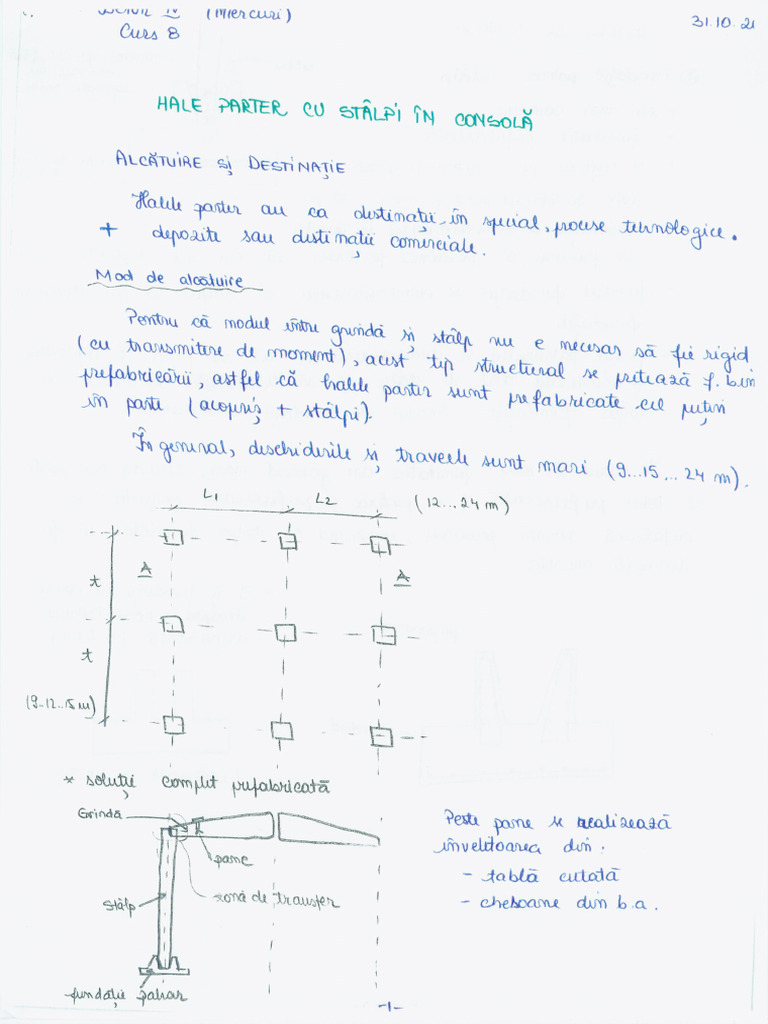 IV (Miercuri)
31.10.2
Curs 8
HALE PARTER CU STÂLPI ÎN CONSOLĂ
ALCĂTUIRE ȘI DESTINAȚIE
Halele parter au ca destinații, în special, procese tehnologice.
+ depozite sau destinații comerciale.
Mod de alcătuire
Pentru că nodul între grindă și stâlp nu e necesar să fie rigid
(cu transmitere de moment), acest tip structural se pretează f. bin
prefabricării, astfel că halele parter sunt prefabricate cel puțin
în parte (acoperiș + stâlpi).
În general, deschiderile și traveele sunt mari (9...15... 24 m).
L1 L2 (12...24 m)
A A
t
t
(9..12..15 m)
* soluție complet prefabricată
Grindă
pane
zonă de transfer
Stâlp
fundație pahar
Peste pane se realizează
învelitoarea din:
- tablă cutată
- chesoane din b.a.
-1-